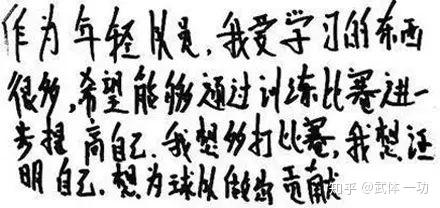 作为年轻队员,我要学习的东西
很多,希望能够通过训练比赛进一
步提高自己.我想多打比赛,我想证
明自己.想为球队做出贡献
知乎 @武体一功